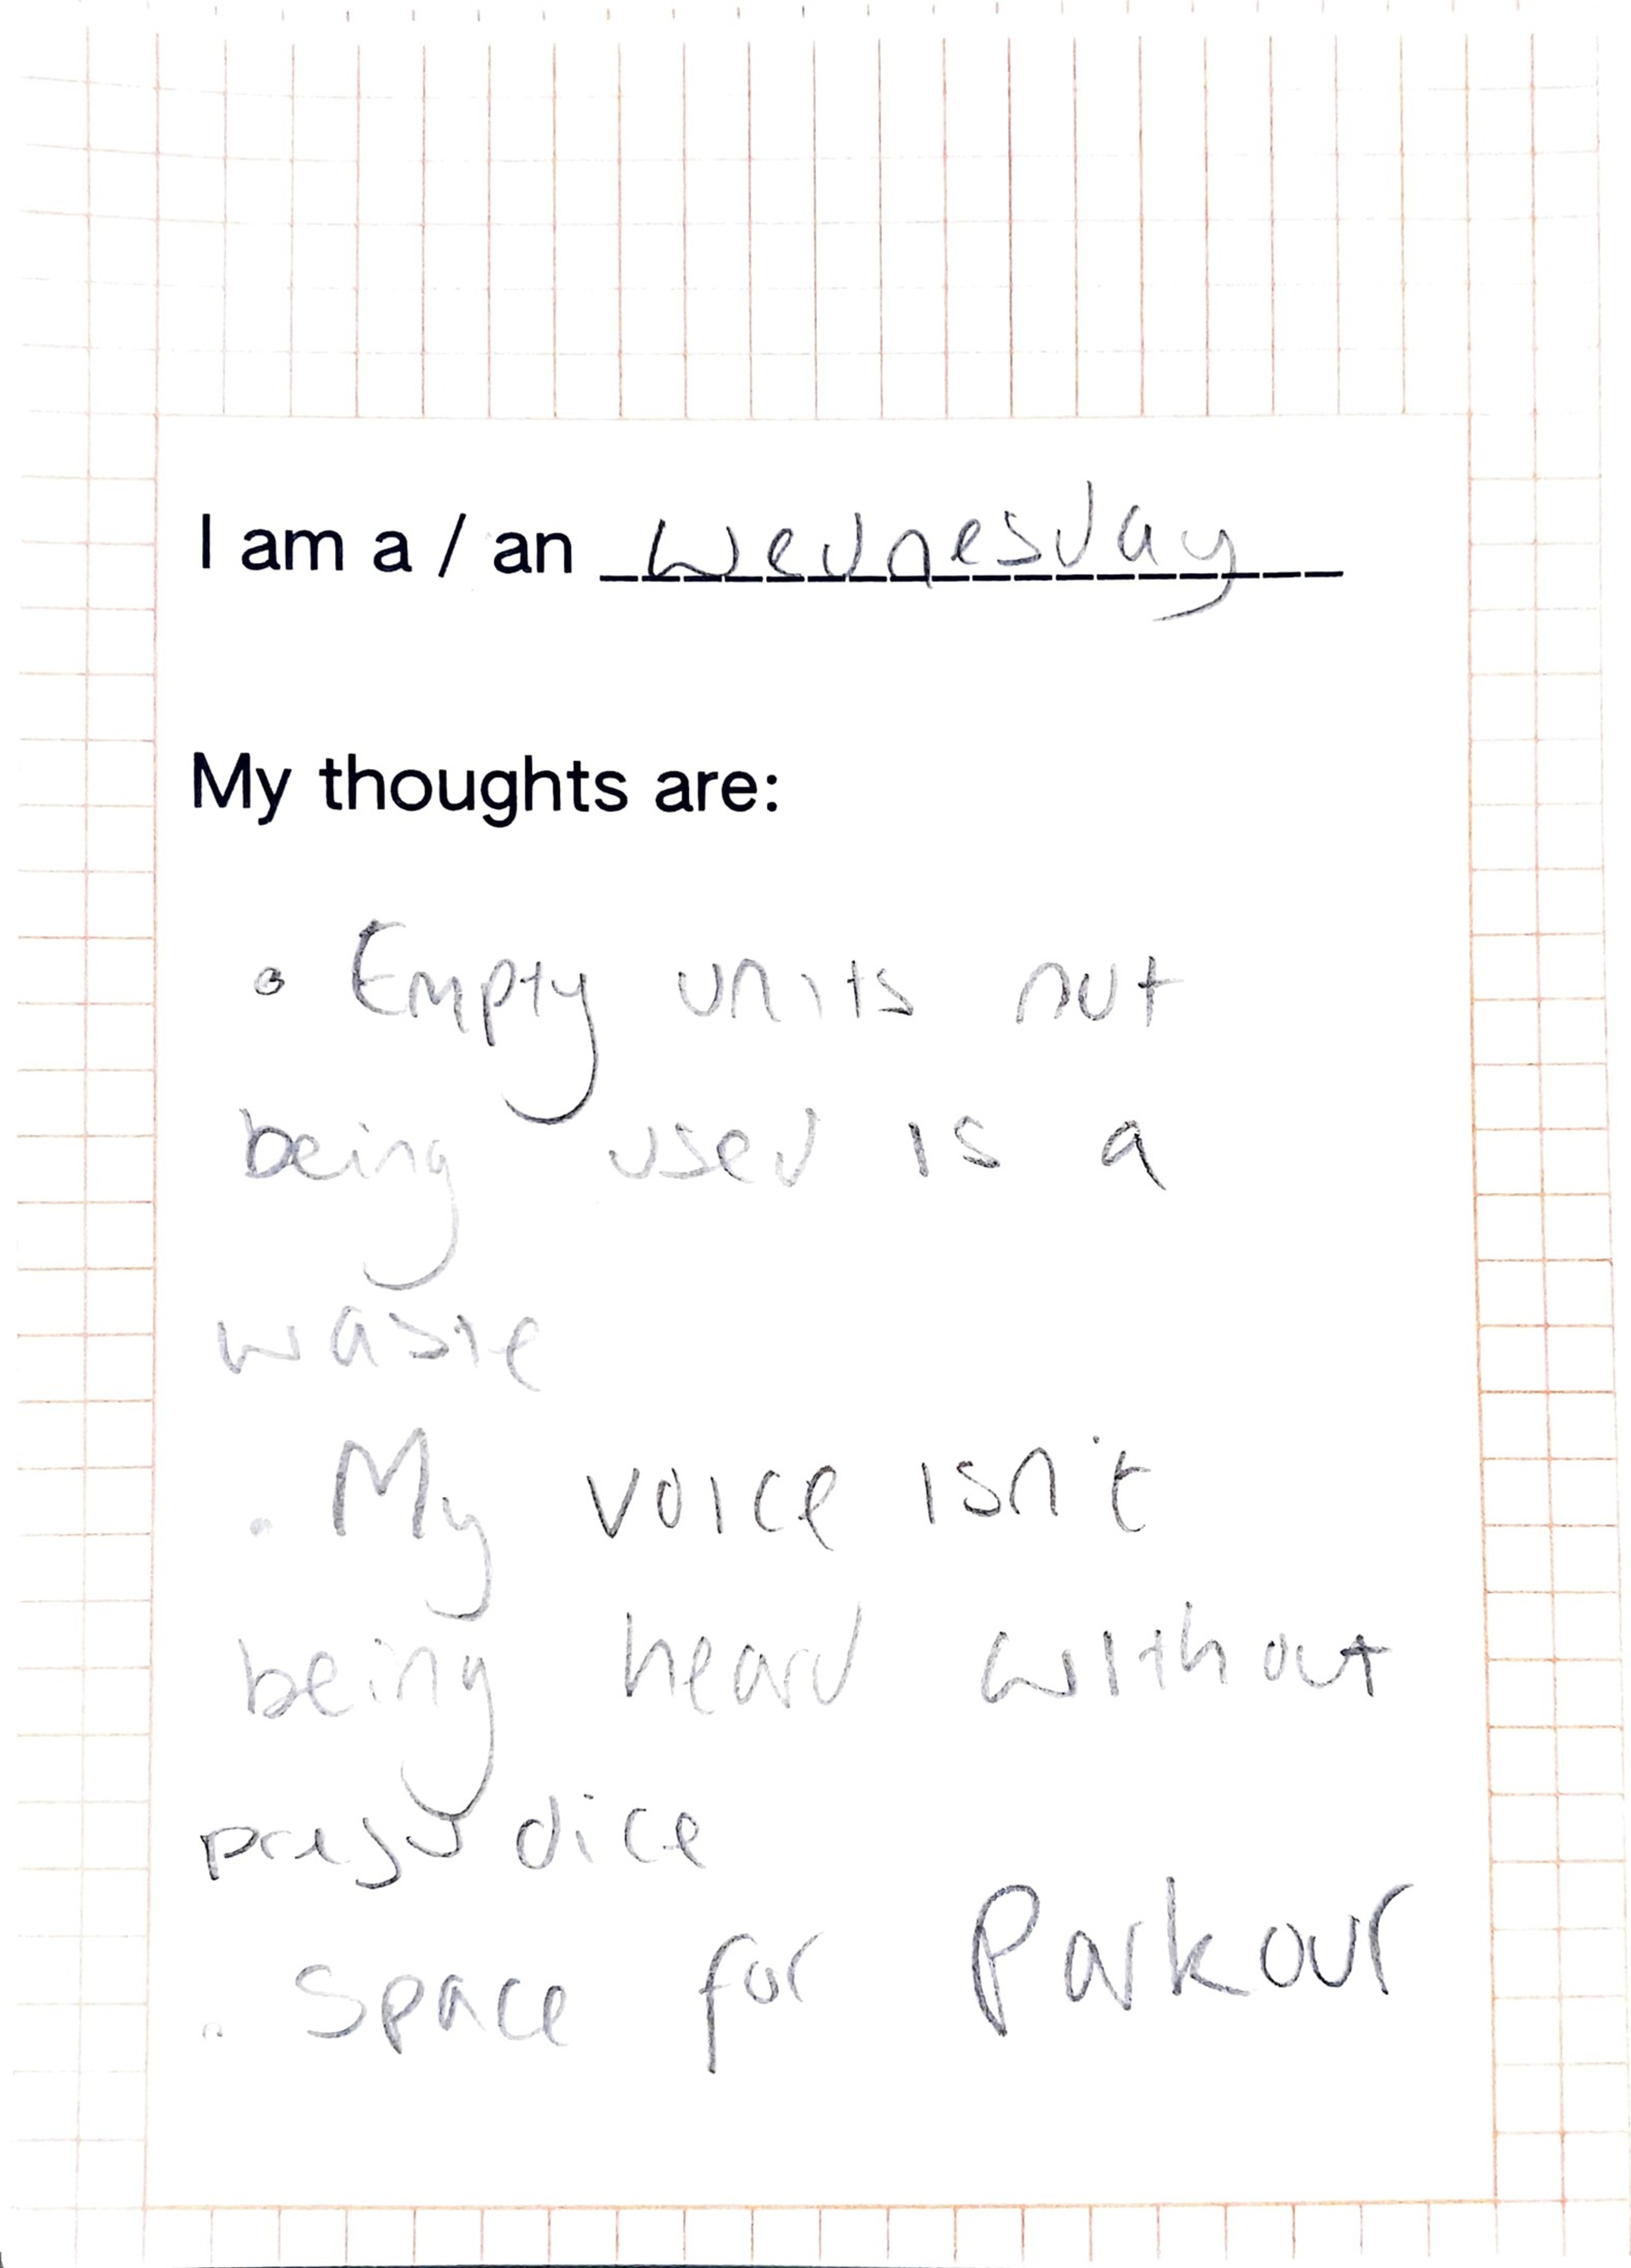 I am a / an Wednesday
My thoughts are:
• Empty units not
being used is a
waste
• My voice isn't
being heard without
prejudice
• Space for Parkour